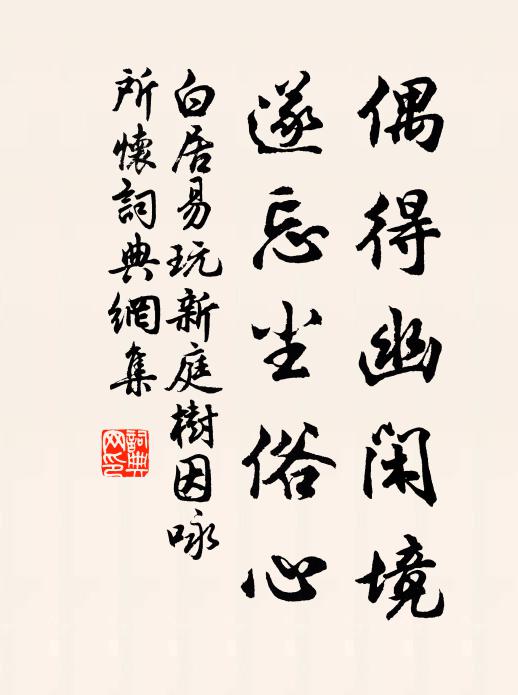 偶得幽閑境
遂忘尘俗心
白居易玩新庭樹因咏
所懷詞典網集
詞典
网印